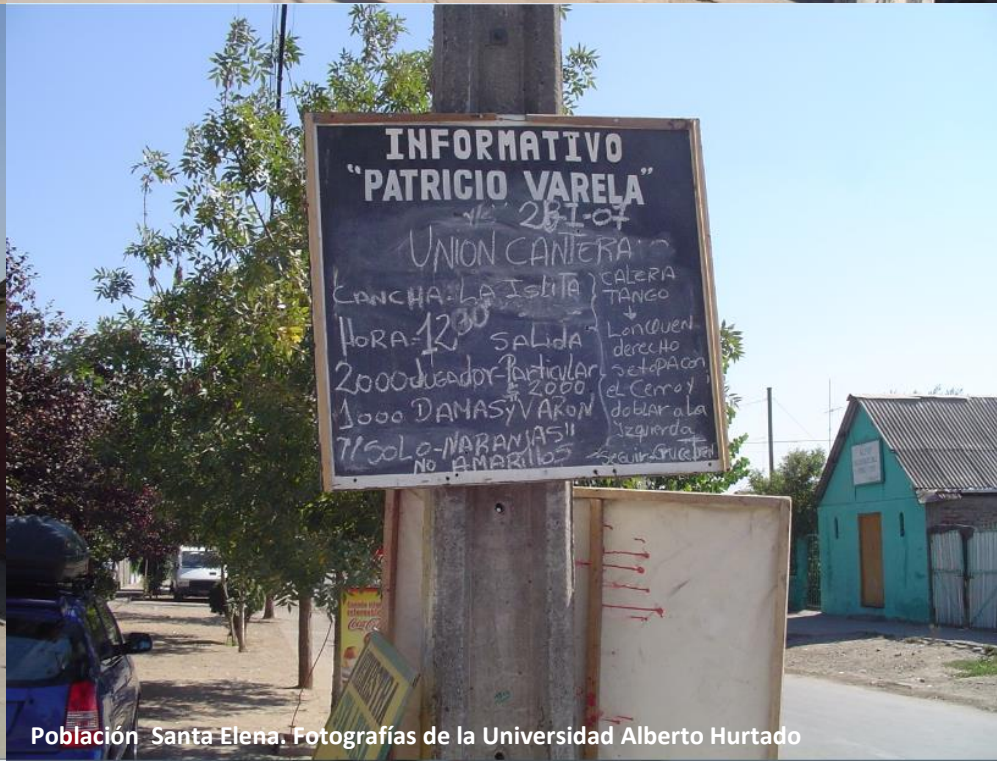 INFORMATIVO
"PATRICIO VARELA"
UNION CANTERA
CANCHA: LA ISLITA
HORA=12³⁰ SALIDA
2000 JUGADOR-Particular
= 2000
1000 DAMAS y VARON
SOLO-NARANJAS"
NO AMARILLOS
CALERA
TANGO
Lonquen
derecho
se topa con
el Cerro y
doblar a la
Izquierda
Seguir
Coca-Cola
Población Santa Elena. Fotografías de la Universidad Alberto Hurtado